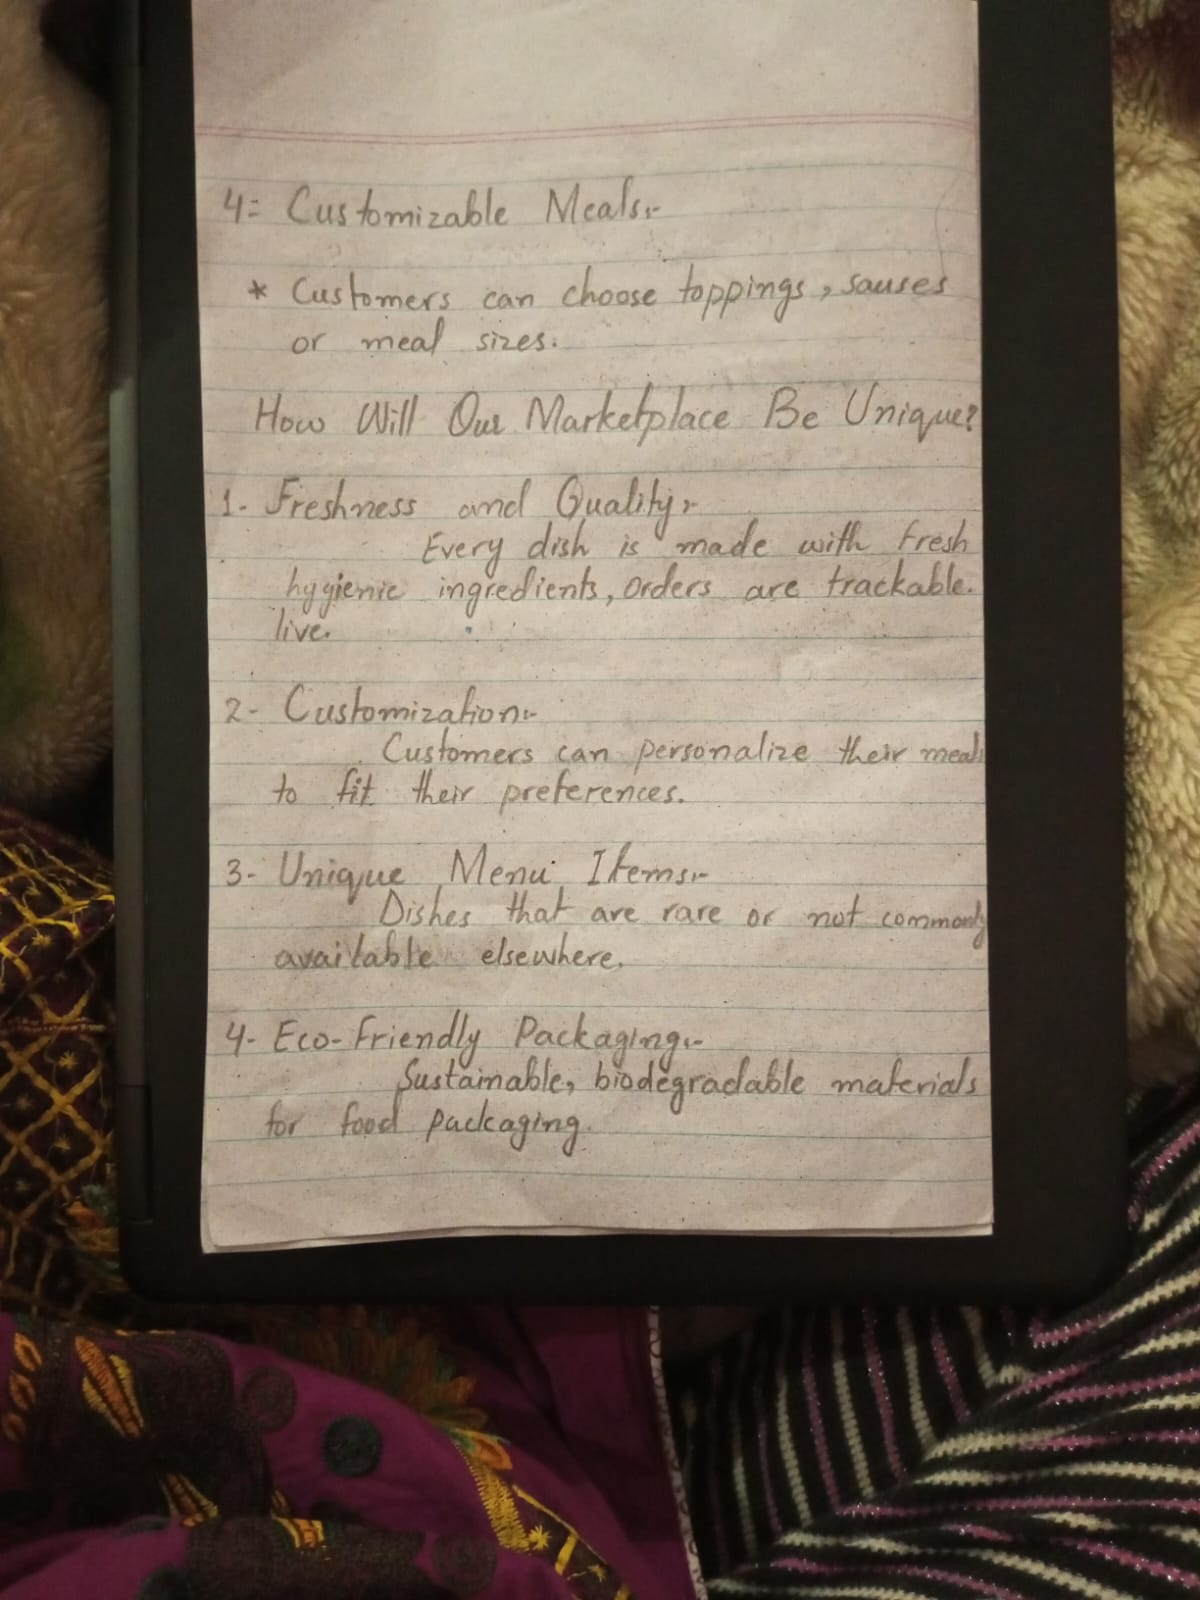 4= Customizable Meals:-
* Customers can choose toppings, sauses
or meal sizes.
How Will Our Marketplace Be Unique?
1- Freshness and Quality:-
Every dish is made with fresh
hygienic ingredients, orders are trackable.
live.
2- Customization:-
Customers can personalize their meals
to fit their preferences.
3- Unique Menu Items:-
Dishes that are rare or not commonly
available elsewhere.
4- Eco-Friendly Packaging:-
Sustainable, biodegradable materials
for food packaging.